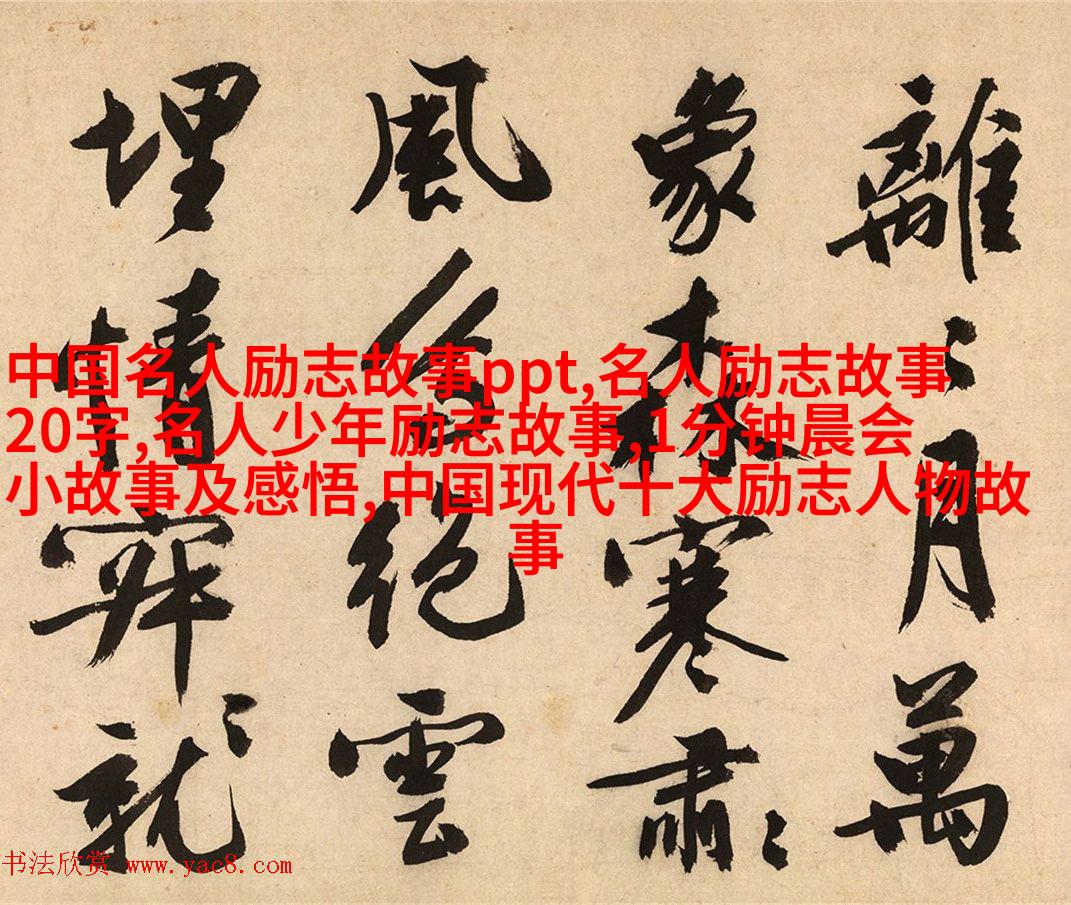 離〻月萬
象森寒肅〻
風絕雲
埋情就〻
中国名人励志故事ppt,名人励志故事
20字,名人少年励志故事,1分钟晨会
小故事及感悟,中国现代十大励志人物故
事
书法欣赏 www.yac8.com